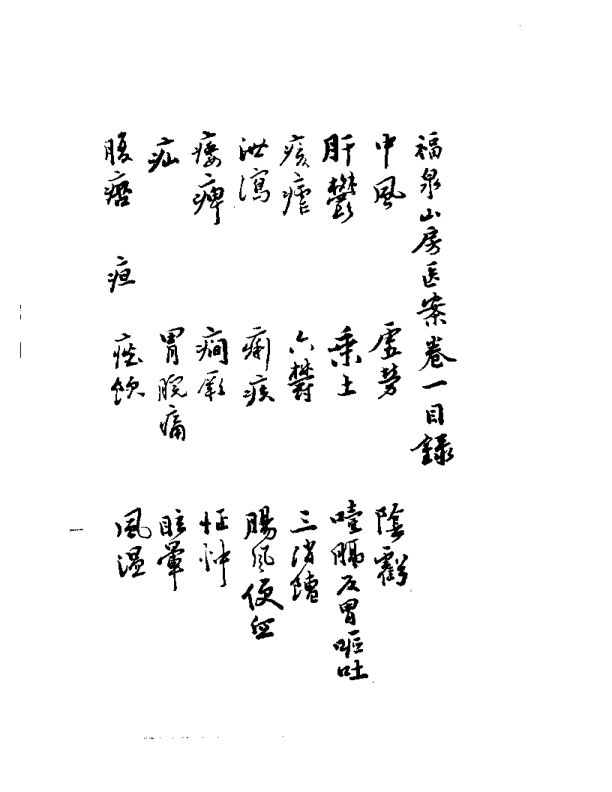 福泉山房医案卷一目録
中風 虛劳 陰虧
肝鬱 乘土 噎膈反胃嘔吐
痎瘧 六鬱 三消
泄瀉 痢疾 腸風便血
痿痺 癇厥 怔忡
疝 胃脘痛 眩暈
腹痞 疸 痰飲 風温